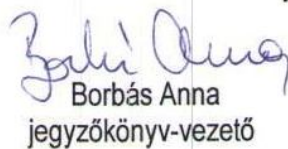 Borbás Anna
Borbás Anna
jegyzőkönyv-vezető